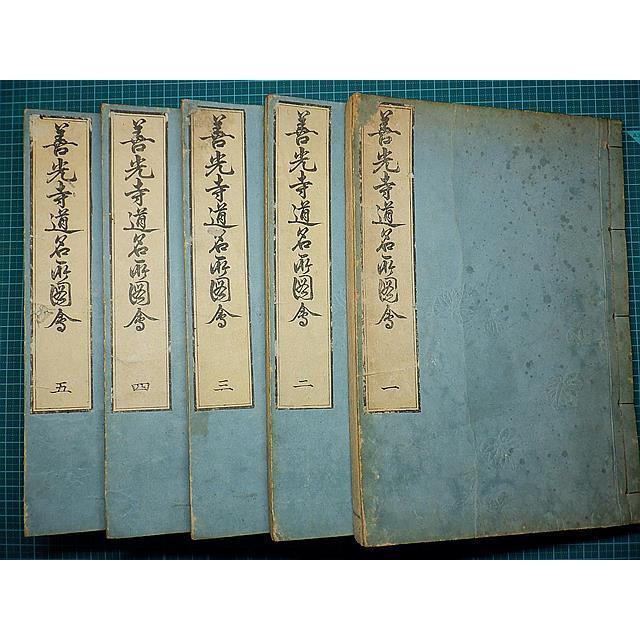 善光寺道名所圖會 一
善光寺道名所圖會 二
善光寺道名所圖會 三
善光寺道名所圖會 四
善光寺道名所圖會 五